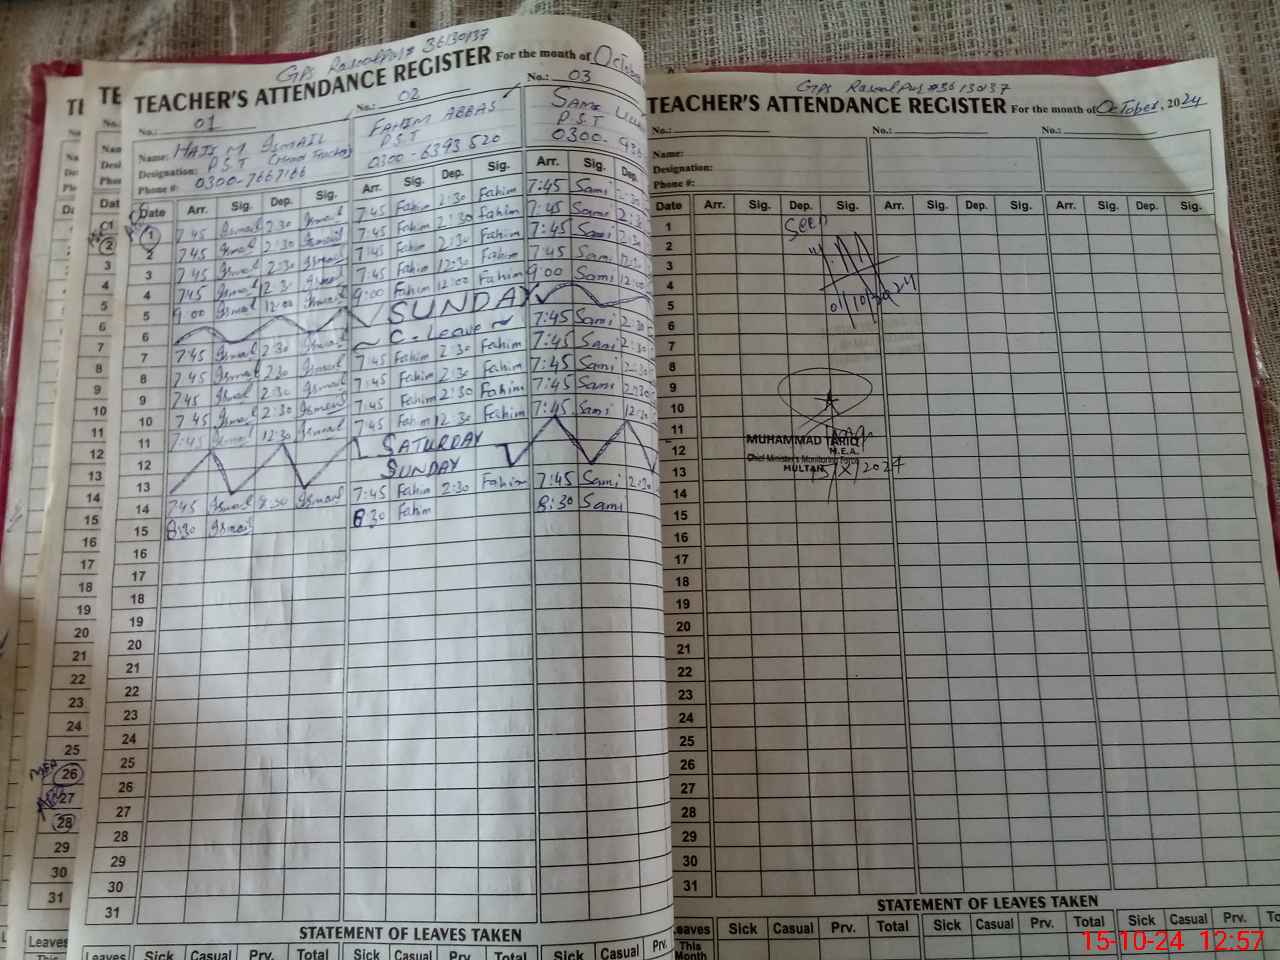 GPS Rasoolpur # 36130137
TEACHER'S ATTENDANCE REGISTER For the month of October
No.: 01 No.: 02 No.: 03
Name: HAJI M ISMAIL FAHIM ABBAS SAMI
Designation: P.S.T (Head Teacher) P.S.T P.S.T
Phone #: 0300-7667166 0300-6393520 0300-
Date Arr. Sig. Dep. Sig. Arr. Sig. Dep. Sig. Arr. Sig. Dep.
1 7:45 Ismail 2:30 Ismail 7:45 Fahim 2:30 Fahim 7:45 Sami 2:30
2 7:45 Ismail 2:30 Ismail 7:45 Fahim 2:30 Fahim 7:45 Sami 2:30
3 7:45 Ismail 2:30 Ismail 7:45 Fahim 2:30 Fahim 7:45 Sami 2:30
4 7:45 Ismail 12:30 Ismail 7:45 Fahim 12:30 Fahim 7:45 Sami 12:30
5 9:00 Ismail 12:00 Ismail 9:00 Fahim 12:00 Fahim 9:00 Sami 12:00
6 SUNDAY
7 7:45 Ismail 2:30 Ismail C. Leave 7:45 Sami 2:30
8 7:45 Ismail 2:30 Ismail 7:45 Fahim 2:30 Fahim 7:45 Sami 2:30
9 7:45 Ismail 2:30 Ismail 7:45 Fahim 2:30 Fahim 7:45 Sami 2:30
10 7:45 Ismail 2:30 Ismail 7:45 Fahim 2:30 Fahim 7:45 Sami 2:30
11 7:45 Ismail 12:30 Ismail 7:45 Fahim 12:30 Fahim 7:45 Sami 12:30
12 SATURDAY
13 SUNDAY
14 7:45 Ismail 2:30 Ismail 7:45 Fahim 2:30 Fahim 7:45 Sami 2:30
15 8:30 Ismail 8:30 Fahim 8:30 Sami
16
17
18
19
20
21
22
23
24
25
26
27
28
29
30
31
STATEMENT OF LEAVES TAKEN
Leaves Sick Casual Prv. Total Sick Casual Prv. Total Sick Casual Prv.
GPS Rasoolpur # 36130137
TEACHER'S ATTENDANCE REGISTER For the month of October, 2024
No.: No.: No.:
Name:
Designation:
Phone #:
Date Arr. Sig. Dep. Sig. Arr. Sig. Dep. Sig. Arr. Sig. Dep. Sig.
1 Seen
2
3
4
5 01/10/2024
6
7
8
9
10
11
12 MUHAMMAD TARIQ
M.E.A.
Chief Minister's Monitoring Force
13 MULTAN 15/X/2024
14
15
16
17
18
19
20
21
22
23
24
25
26
27
28
29
30
31
STATEMENT OF LEAVES TAKEN
Leaves Sick Casual Prv. Total Sick Casual Prv. Total Sick Casual Prv.
This Month
15-10-24 12:57